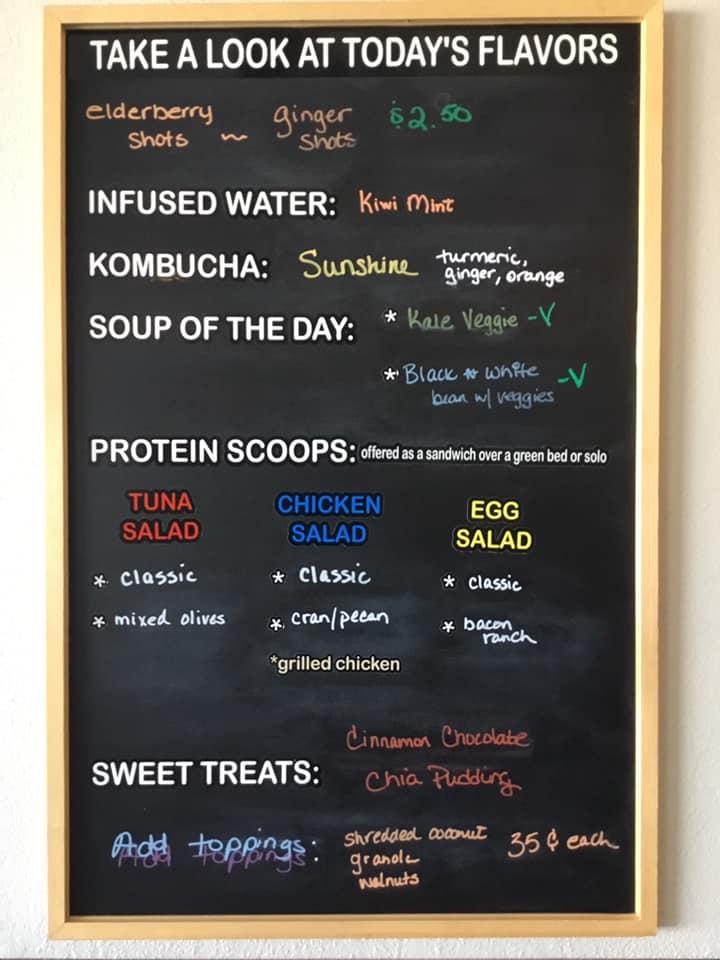 TAKE A LOOK AT TODAY'S FLAVORS
elderberry shots ~ ginger shots $2.50
INFUSED WATER: Kiwi Mint
KOMBUCHA: Sunshine turmeric, ginger, orange
SOUP OF THE DAY: * Kale Veggie -V
* Black & white bean w/ veggies -V
PROTEIN SCOOPS: offered as a sandwich over a green bed or solo
TUNA SALAD
* classic
* mixed olives
CHICKEN SALAD
* classic
* cran/pecan
*grilled chicken
EGG SALAD
* classic
* bacon ranch
SWEET TREATS: Cinnamon Chocolate Chia Pudding
Add toppings: shredded coconut granola walnuts 35¢ each